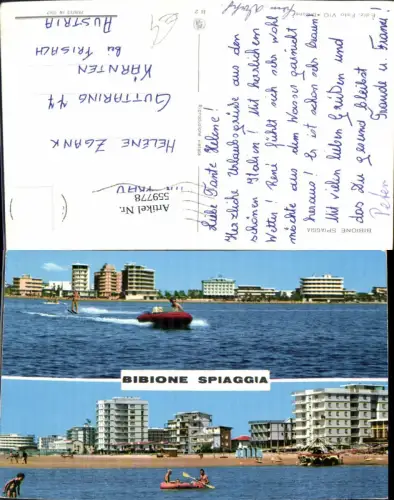 Liebe Tante Helene!
Herzliche Urlaubsgrüße aus dem
schönen Italien! Mit herrlichem
Wetter! René fühlt sich sehr wohl
möchte aus dem Wasser garnicht
heraus! Er ist schon sehr braun!
Mit vielen lieben Grüßen und
das Du gesund bleibst
Traude u. Franz!
Peter
HELENE ZGANK
GUTTARING 44
KÄRNTEN
bei FRISACH
AUSTRIA
Artikel Nr.
559778
BIBIONE SPIAGGIA
BIBIONE SPIAGGIA